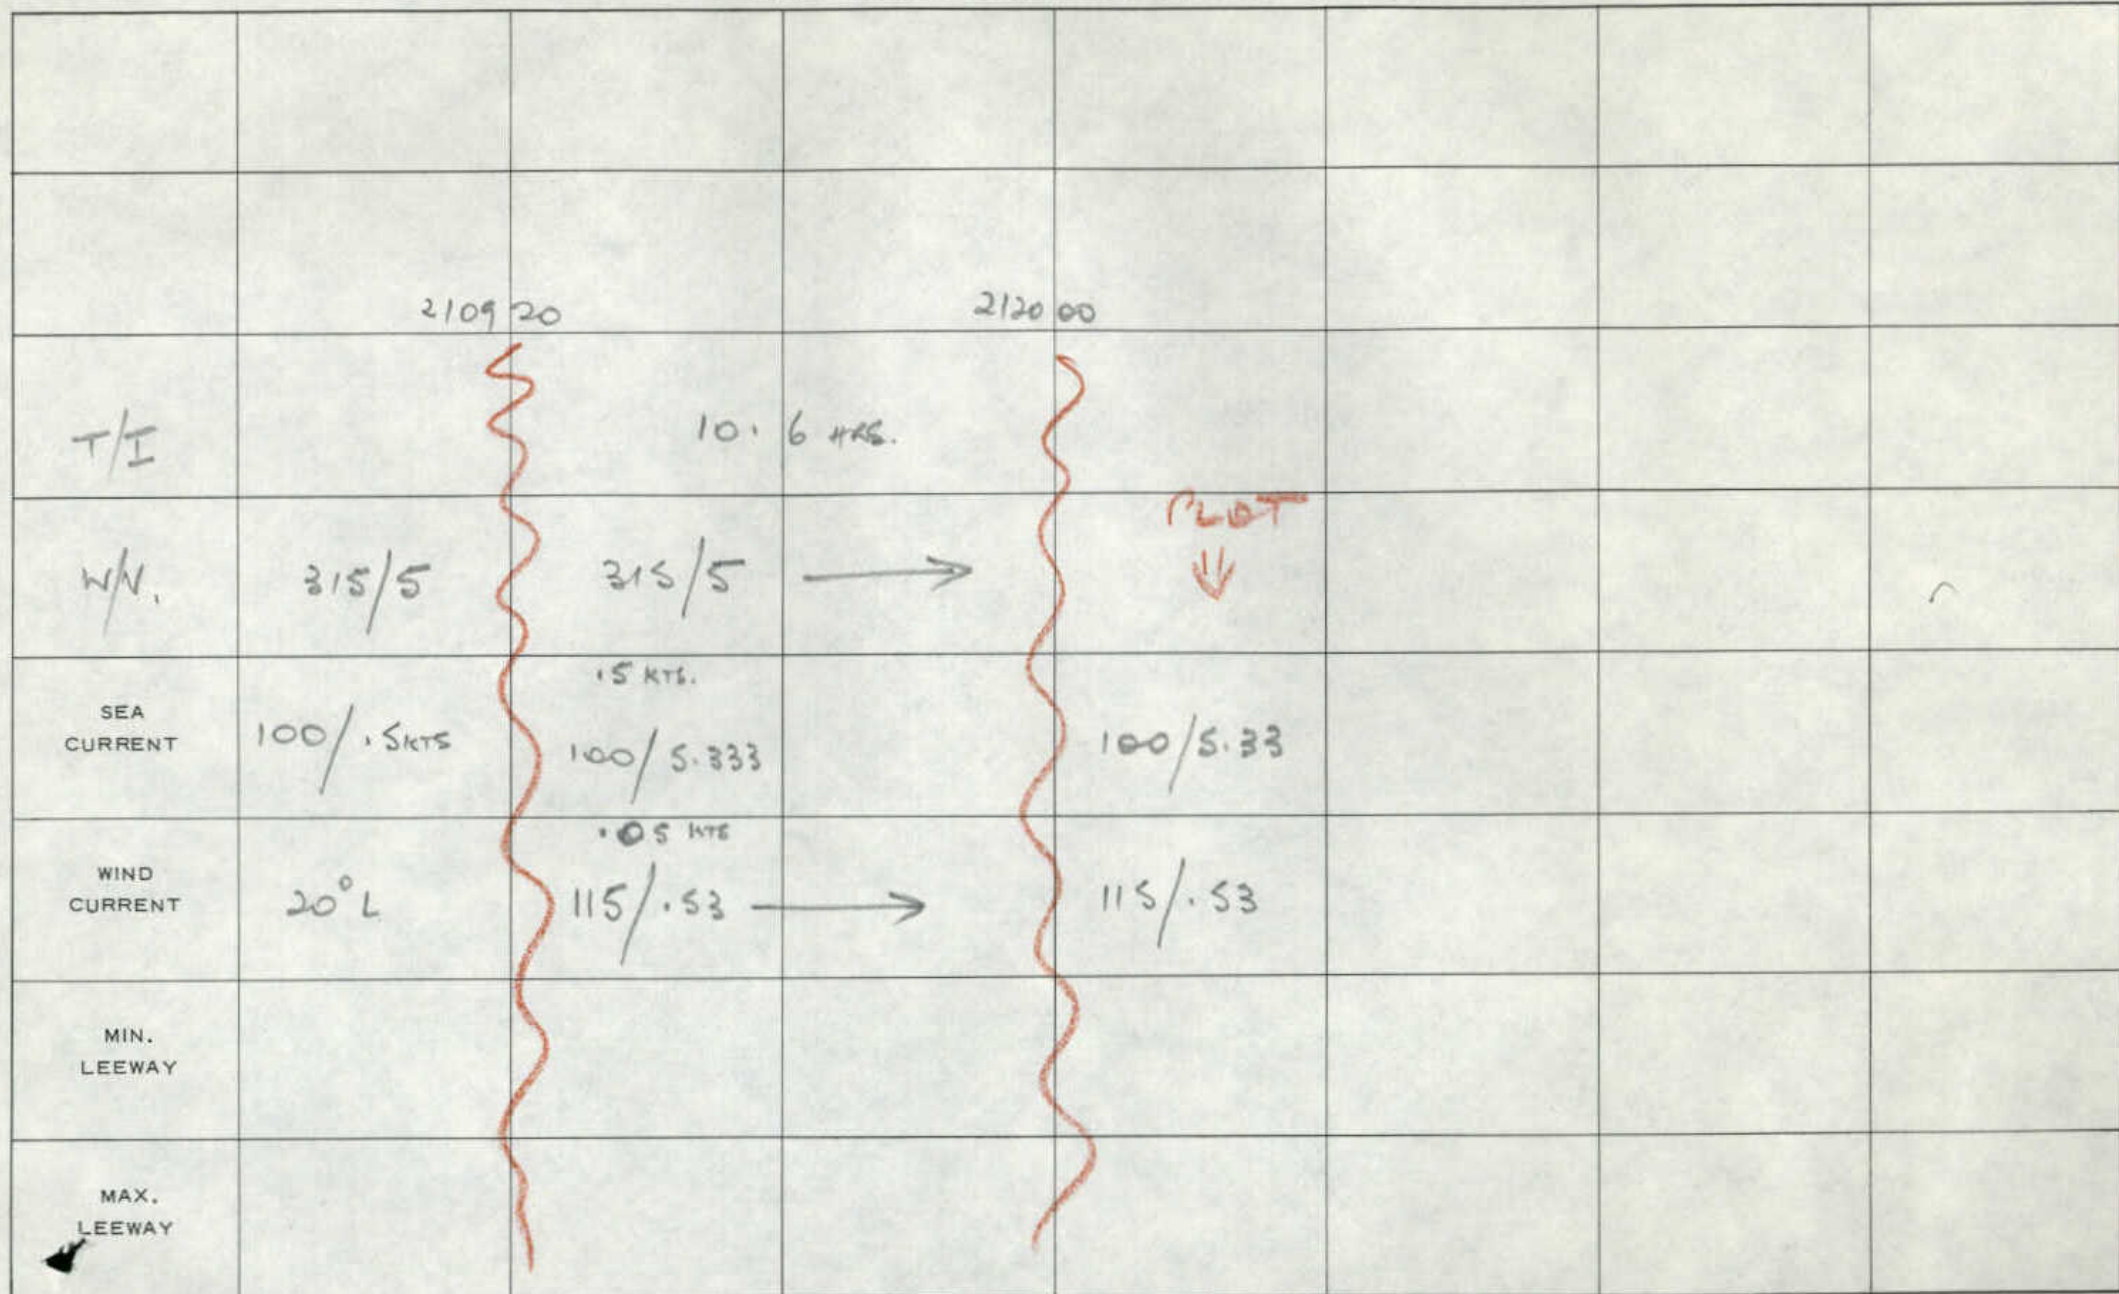 210920 212000
T/I 10.6 HRS.
PLOT
W/V. 315/5 315/5
.5 KTS.
SEA
CURRENT 100/.5KTS 100/5.333 100/5.33
.05 KTS
WIND
CURRENT 20° L 115/.53 115/.53
MIN.
LEEWAY
MAX.
LEEWAY